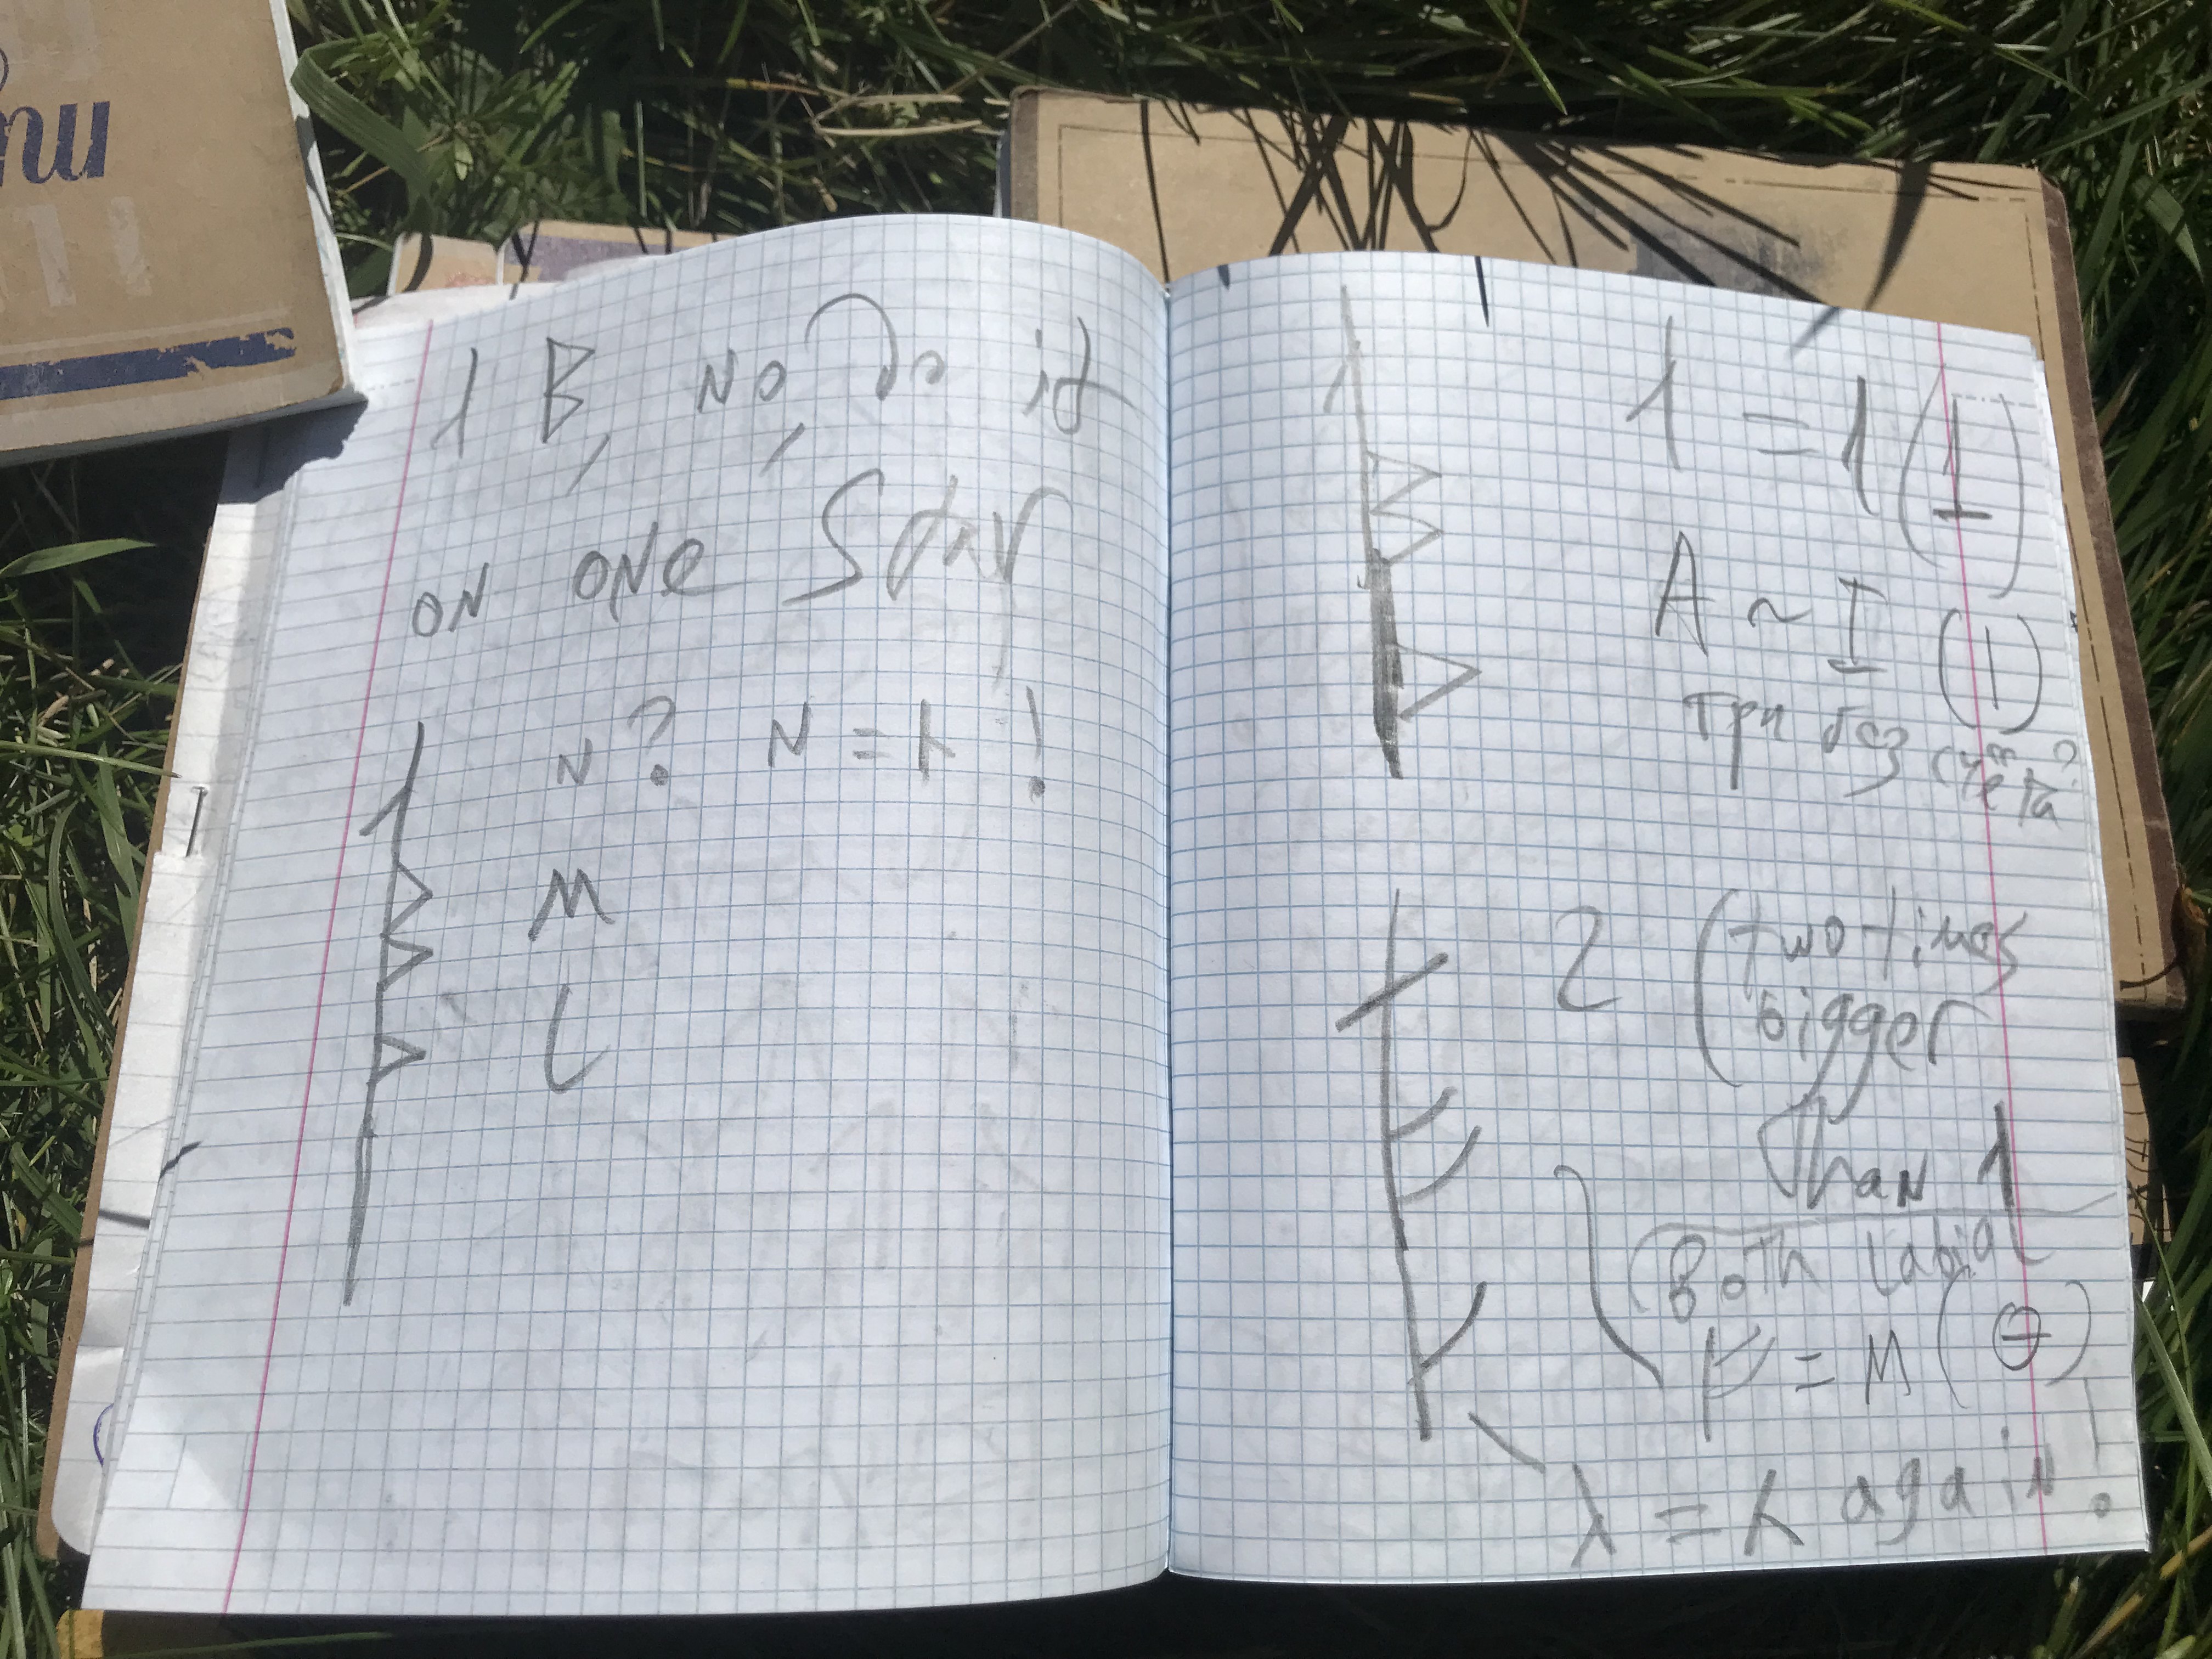 1 B, NO, do it
ON ONE Star
N? N = λ !
M
L
1 = 1 (1)
A ~ I (|)
три без счёта?
2 (two times
bigger
Than 1
Both labial
= M (θ)
λ = λ again!